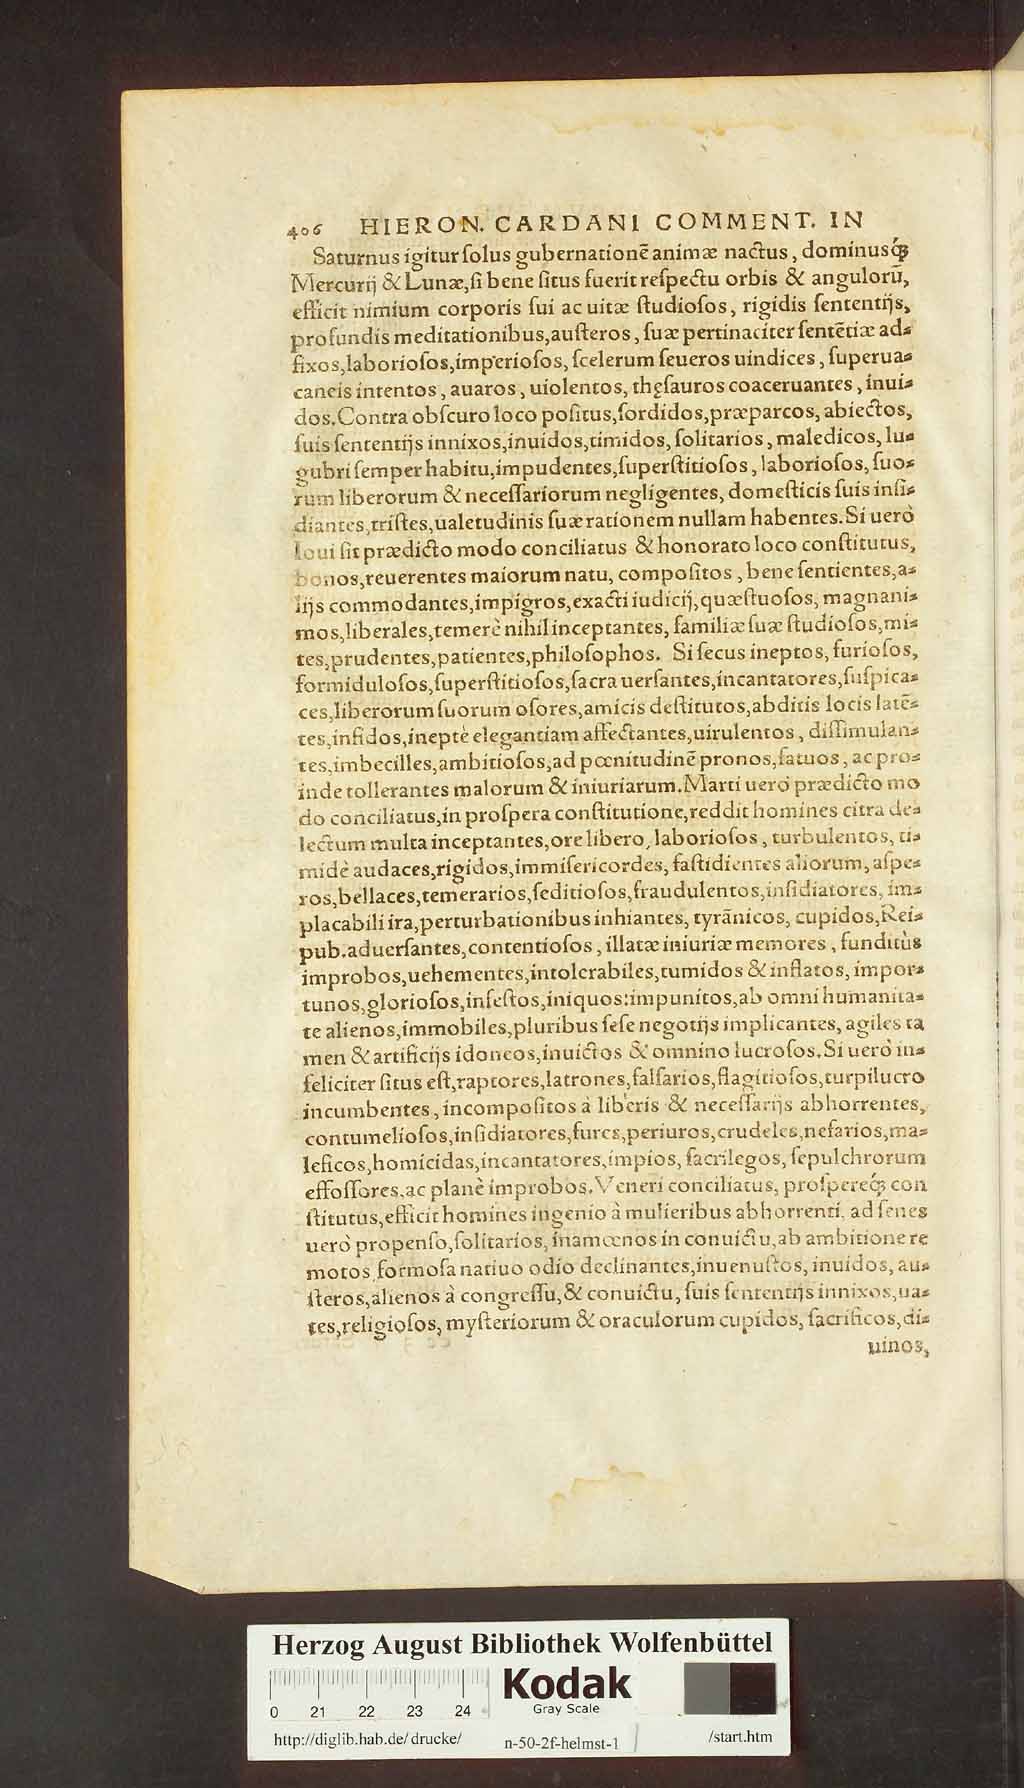 406 HIERON. CARDANI COMMENT. IN
Saturnus igitur ſolus gubernationē animæ nactus, dominusq́;
Mercurij & Lunæ, ſi bene ſitus fuerit reſpectu orbis & angulorū,
efficit nimium corporis ſui ac uitæ ſtudioſos, rigidis ſententijs,
profundis meditationibus, auſteros, ſuæ pertinaciter ſentētiæ ad⸗
fixos, laborioſos, imperioſos, ſcelerum ſeueros uindices, ſuperua⸗
caneis intentos, auaros, uiolentos, thęſauros coaceruantes, inui⸗
dos. Contra obſcuro loco poſitus, ſordidos, præparcos, abiectos,
ſuis ſententijs innixos, inuidos, timidos, ſolitarios, maledicos, lu⸗
gubri ſemper habitu, impudentes, ſuperſtitioſos, laborioſos, ſuo⸗
rum liberorum & neceſſariorum negligentes, domeſticis ſuis inſi⸗
diantes, triſtes, ualetudinis ſuæ rationem nullam habentes. Si uerò
Ioui ſit prædicto modo conciliatus & honorato loco conſtitutus,
bonos, reuerentes maiorum natu, compoſitos, bene ſentientes, a⸗
lijs commodantes, impigros, exacti iudicij, quæſtuoſos, magnani⸗
mos, liberales, temerè nihil inceptantes, familiæ ſuæ ſtudioſos, mi⸗
tes, prudentes, patientes, philoſophos. Si ſecus ineptos, furioſos,
formiduloſos, ſuperſtitioſos, ſacra uerſantes, incantatores, ſuſpica⸗
ces, liberorum ſuorum oſores, amicis deſtitutos, abditis locis latē⸗
tes, infidos, ineptè elegantiam affectantes, uirulentos, diſſimulan⸗
tes, imbecilles, ambitioſos, ad pœnitudinē pronos, fatuos, ac pro⸗
inde tollerantes malorum & iniuriarum. Marti uerò prædicto mo
do conciliatus, in proſpera conſtitutione, reddit homines citra de⸗
lectum multa inceptantes, ore libero, laborioſos, turbulentos, ti⸗
midè audaces, rigidos, immiſericordes, faſtidientes aliorum, aſpe⸗
ros, bellaces, temerarios, ſeditioſos, fraudulentos, inſidiatores, im⸗
placabili ira, perturbationibus inhiantes, tyrānicos, cupidos, Rei⸗
pub. aduerſantes, contentioſos, illatæ iniuriæ memores, funditùs
improbos, uehementes, intolerabiles, tumidos & inflatos, impor⸗
tunos, glorioſos, infeſtos, iniquos: impunitos, ab omni humanita⸗
te alienos, immobiles, pluribus ſeſe negotijs implicantes, agiles ta
men & artificijs idoneos, inuictos & omnino lucroſos. Si uerò in⸗
feliciter ſitus eſt, raptores, latrones, falſarios, flagitioſos, turpilucro
incumbentes, incompoſitos à liberis & neceſſarijs abhorrentes,
contumelioſos, inſidiatores, fures, periuros, crudeles, nefarios, ma⸗
leficos, homicidas, incantatores, impios, ſacrilegos, ſepulchrorum
effoſſores, ac planè improbos. Veneri conciliatus, proſpereq́; con
ſtitutus, efficit homines ingenio à mulieribus abhorrenti, ad ſenes
uerò propenſo, ſolitarios, inamœnos in conuictu, ab ambitione re
motos, formoſa natiuo odio declinantes, inuenuſtos, inuidos, au⸗
ſteros, alienos à congreſſu, & conuictu, ſuis ſententijs innixos, ua⸗
tes, religioſos, myſteriorum & oraculorum cupidos, ſacrificos, di⸗
uinos,
Herzog August Bibliothek Wolfenbüttel
Kodak
Gray Scale
0 21 22 23 24
http://diglib.hab.de/drucke/ n-50-2f-helmst-1 /start.htm